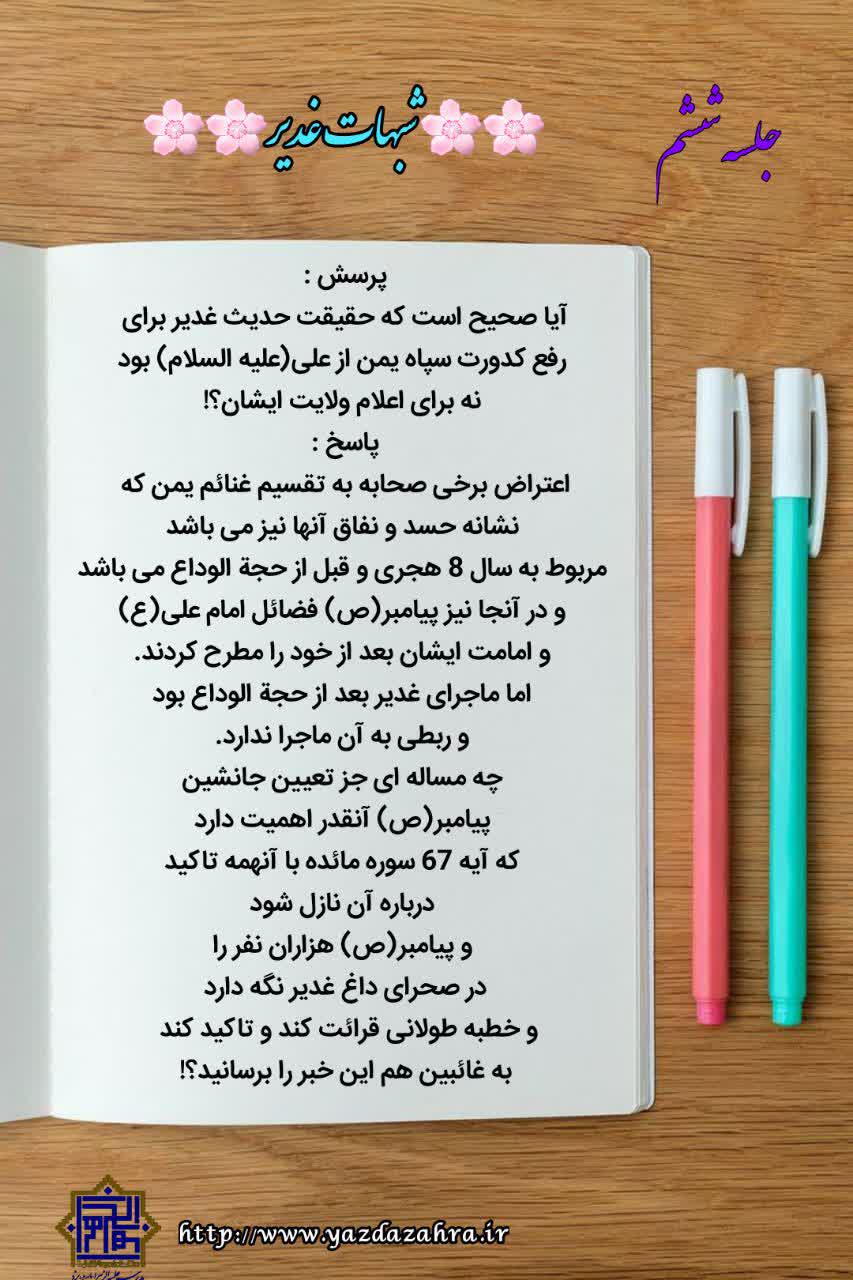 جلسه ششم
شبهات غدیر
پرسش :
آیا صحیح است که حقیقت حدیث غدیر برای
رفع کدورت سپاه یمن از علی(علیه السلام) بود
نه برای اعلام ولایت ایشان؟!
پاسخ :
اعتراض برخی صحابه به تقسیم غنائم یمن که
نشانه حسد و نفاق آنها نیز می باشد
مربوط به سال 8 هجری و قبل از حجة الوداع می باشد
و در آنجا نیز پیامبر(ص) فضائل امام علی(ع)
و امامت ایشان بعد از خود را مطرح کردند.
اما ماجرای غدیر بعد از حجة الوداع بود
و ربطی به آن ماجرا ندارد.
چه مساله ای جز تعیین جانشین
پیامبر(ص) آنقدر اهمیت دارد
که آیه 67 سوره مائده با آنهمه تاکید
درباره آن نازل شود
و پیامبر(ص) هزاران نفر را
در صحرای داغ غدیر نگه دارد
و خطبه طولانی قرائت کند و تاکید کند
به غائبین هم این خبر را برسانید؟!
http://www.yazdazahra.ir